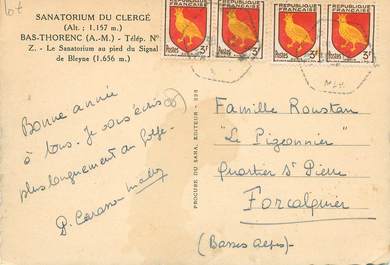 lot
SANATORIUM DU CLERGÉ
(Alt.: 1.157 m.)
BAS-THORENC (A.-M.) - Télép. N°
Z. - Le Sanatorium au pied du Signal
de Bleyne (1.656 m.)
RÉPUBLIQUE FRANÇAISE
RÉPUBLIQUE FRANÇAISE
Postes 3F
Postes 3F
Postes 3F
Postes 3F
Bonne année
à tous. Je vous écris
plus longuement au
P.
PROCURE DU SANA, ÉDITEUR
Famille Roustan
"Le Pigeonnier"
Quartier St Pierre
Forcalquier
(Basses Alpes)